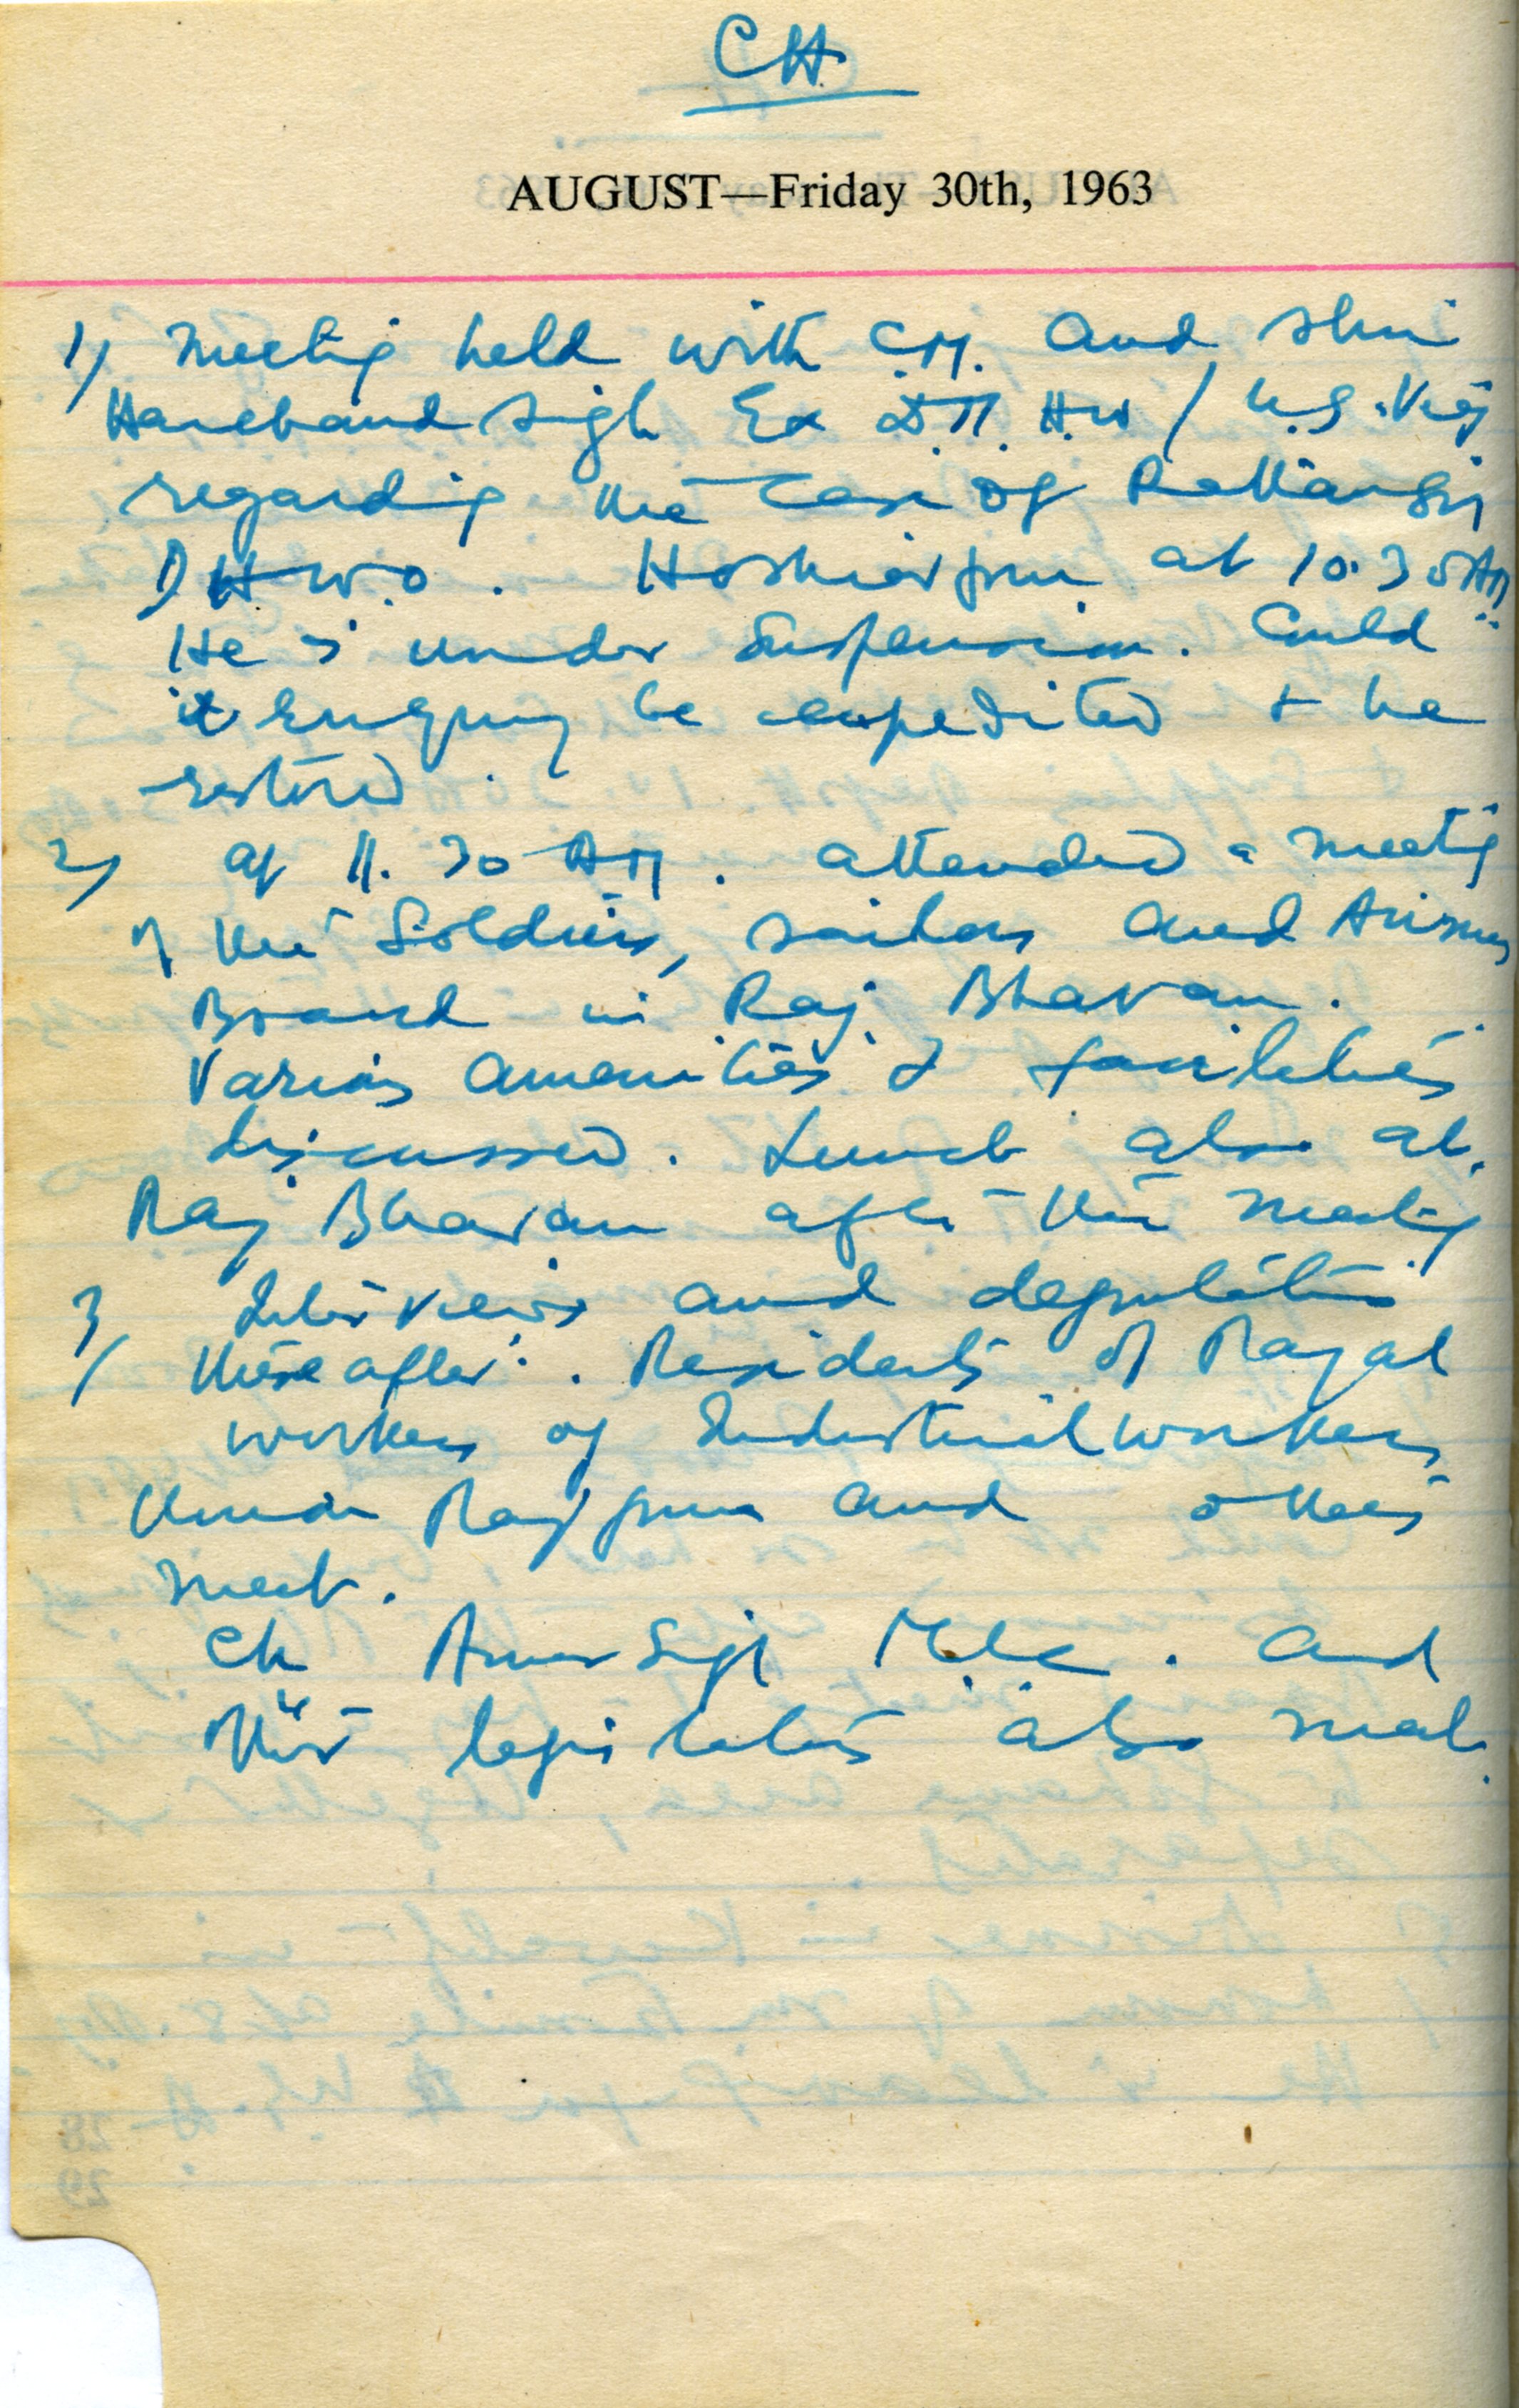 CH
AUGUST—Friday 30th, 1963
1) Meeting held with C.M. and Shri
Harchand Singh Ex D.M. H.W /
regarding the case of Rattan Singh
D H.W.O. Hoshiarpur at 10.30 AM
He is under Suspension. Could
enquiry be expedited & he
restored.
2) at 11.30 AM. attended a meeting
of the Soldiers, Sailors and Airmen
Board in Raj Bhavan.
Various amenities & facilities
discussed. Lunch also at
Raj Bhavan after the meeting
3) Interviews and deputations
thereafter. Residents of
workers of Industrial workers
Rajpura and others
meet.
Ch Amar Singh M.L.C. and
other legislators also meet.